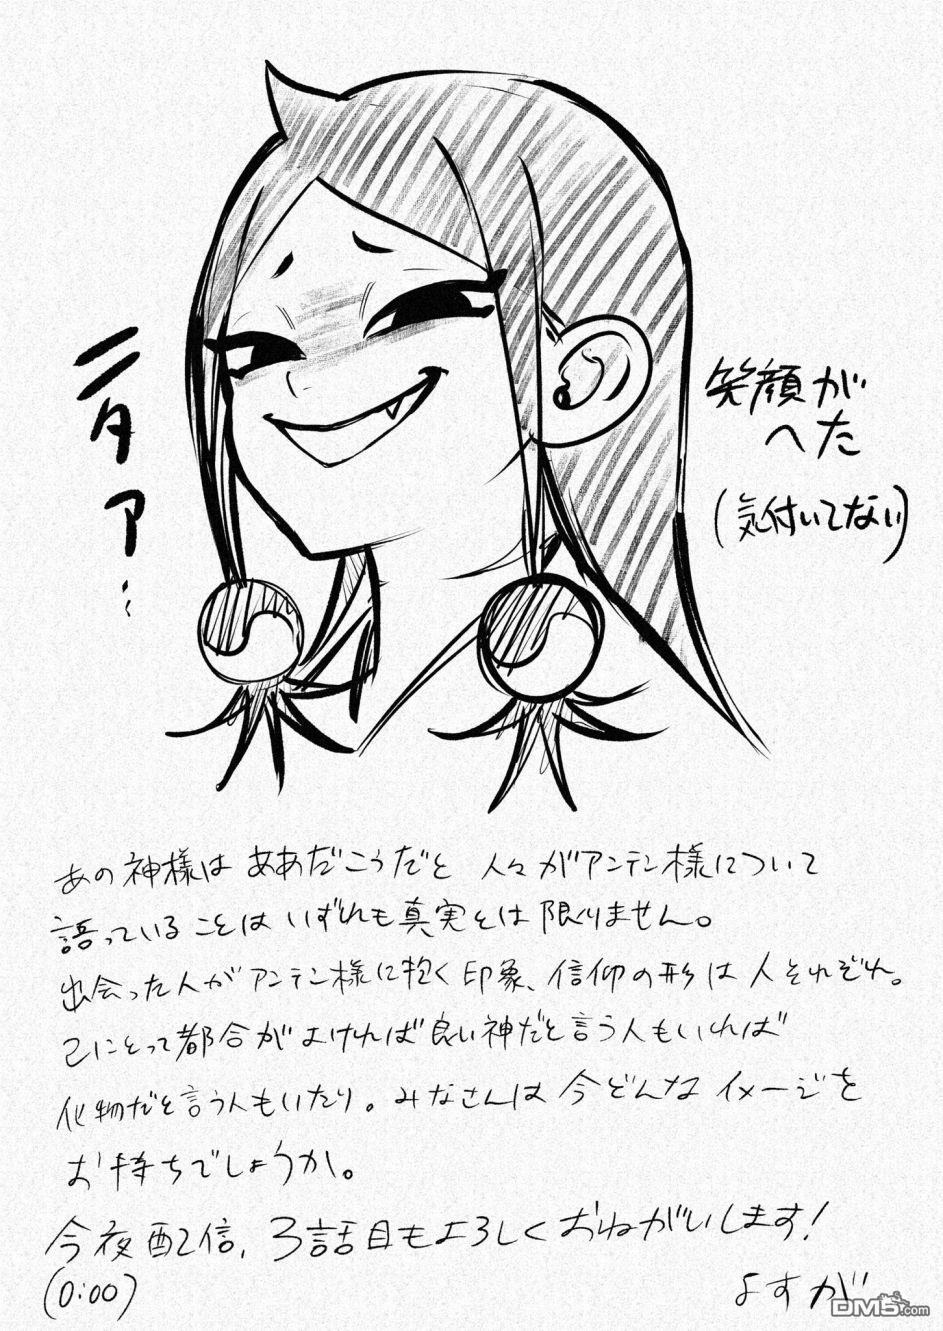 ニタァ…
笑顔が
へた
(気付いてない)
あの神様は ああだこうだと 人々がアンテン様について
語っていることは いずれも真実とは 限りません。
出会った人が アンテン様に抱く 印象、信仰の形は 人それぞれ。
己にとって都合がよければ良い神だと言う人もいれば
化物だと言う人もいたり。みなさんは 今どんな イメージを
お持ちでしょうか。
今夜配信、3話目もよろしくおねがいします！
(0:00)
よすが
DM5.com